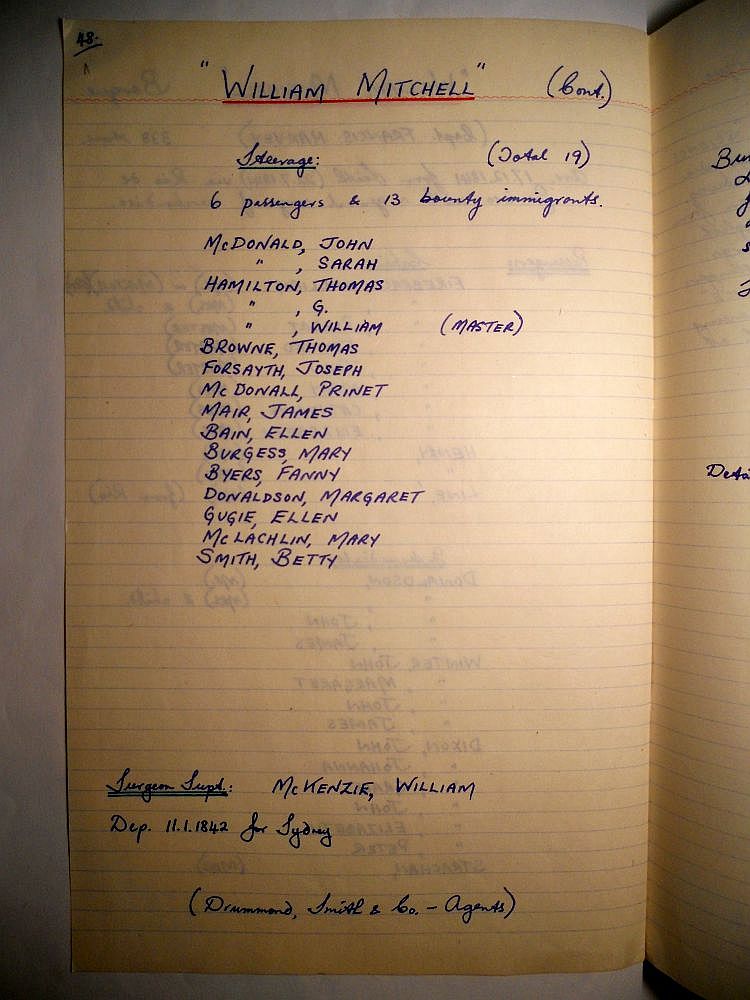 48.
"WILLIAM MITCHELL" (Cont.)
Steerage: (Total 19)
6 passengers & 13 bounty immigrants.
McDONALD, JOHN
" , SARAH
HAMILTON, THOMAS
" , G.
" , WILLIAM (MASTER)
BROWNE, THOMAS
FORSAYTH, JOSEPH
McDONALL, PRINET
MAIR, JAMES
BAIN, ELLEN
BURGESS, MARY
BYERS, FANNY
DONALDSON, MARGARET
GUGIE, ELLEN
McLACHLIN, MARY
SMITH, BETTY
Surgeon Supt.: McKENZIE, WILLIAM
Dep. 11.1.1842 for Sydney
(Drummond, Smith & Co. - Agents)